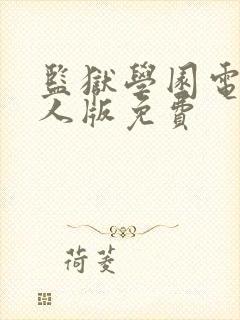 監獄學園電
人版免費
荷菱